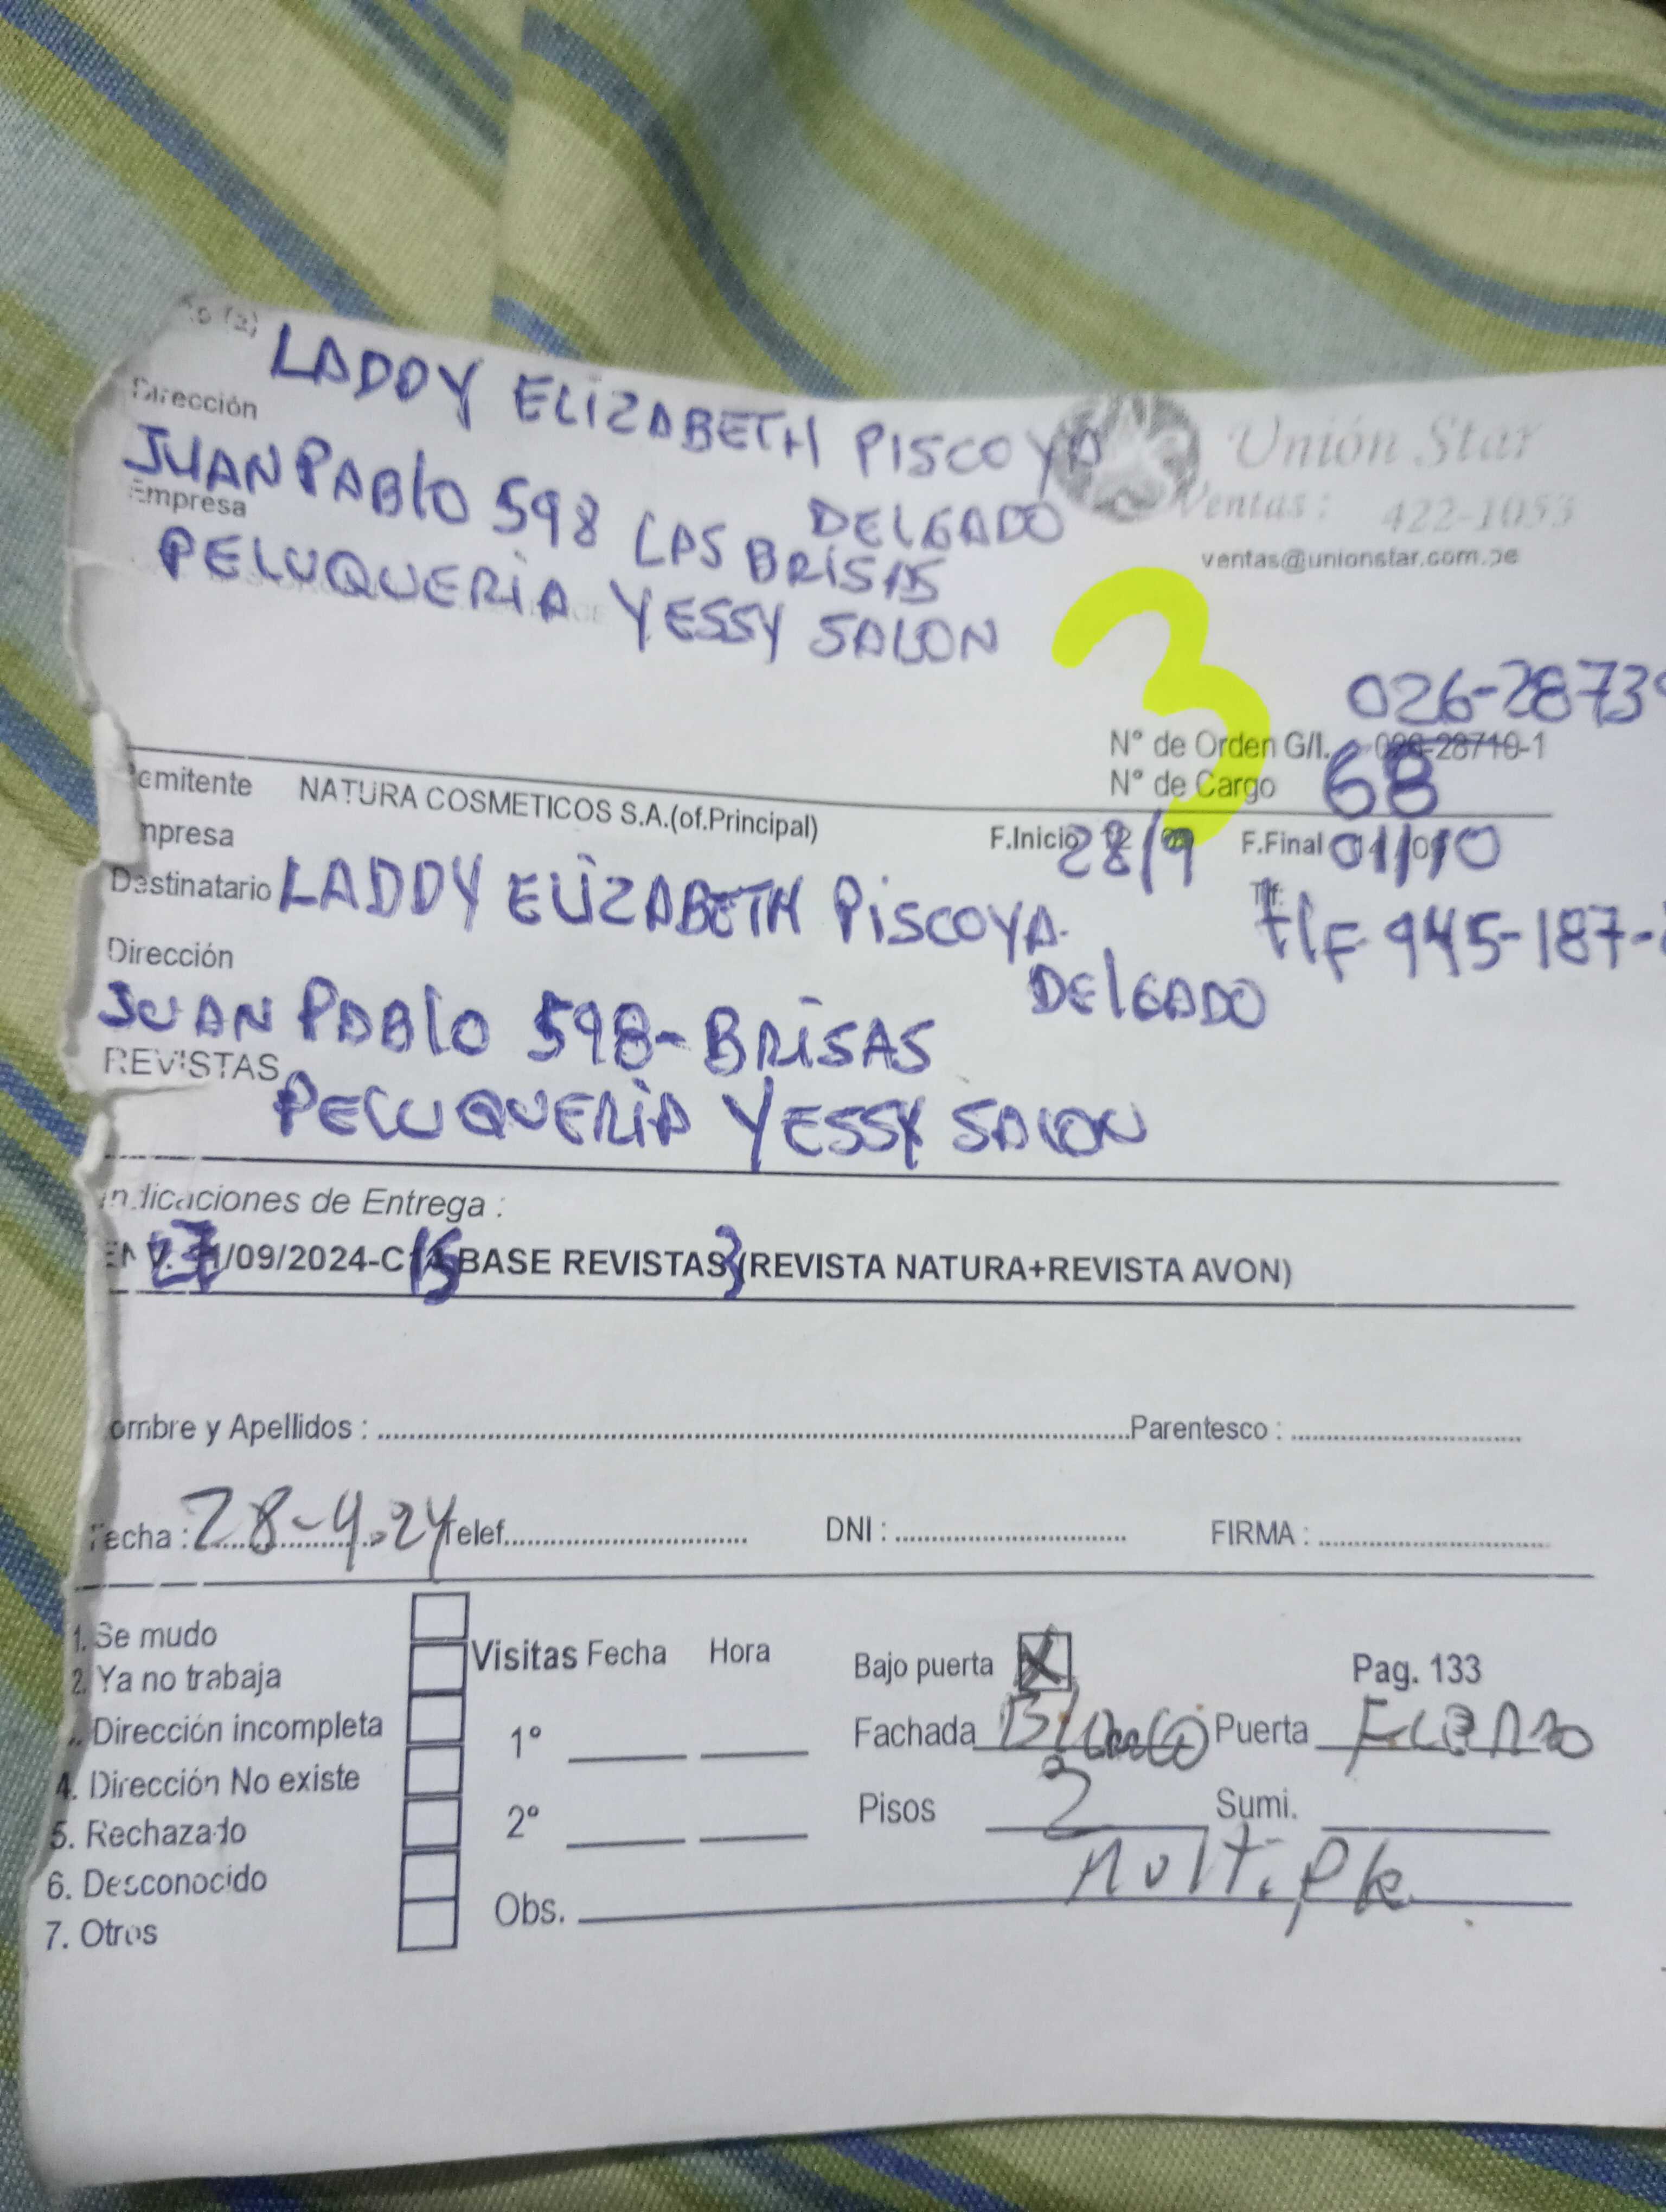 (a) LADDY ELIZABETH PISCOYA
DELGADO
Dirección
JUAN PABLO 598 LAS BRISAS
Empresa
PELUQUERIA YESSY SALON
Unión Star
Ventas: 422-1053
ventas@unionstar.com.pe
3
026-2873
N° de Orden G/I. -28710-1
N° de Cargo 68
emitente NATURA COSMETICOS S.A.(of.Principal)
mpresa
F.Inicio 28/9 F.Final 01/10
Destinatario LADDY ELIZABETH PISCOYA
DELGADO
Tlf.
tlf 945-187-
Dirección
JUAN PABLO 598-BRISAS
REVISTAS
PELUQUERIA YESSY SALON
Indicaciones de Entrega :
ENV. 27/09/2024-C15 BASE REVISTAS 3 (REVISTA NATURA+REVISTA AVON)
ombre y Apellidos : Parentesco :
Fecha : 28-9.24 Telef. DNI : FIRMA :
1. Se mudo
2. Ya no trabaja
. Dirección incompleta
4. Dirección No existe
5. Rechazado
6. Desconocido
7. Otros
Visitas Fecha Hora
1°
2°
Obs.
Bajo puerta X Pag. 133
Fachada Blanco Puerta Fierro
Pisos 2 Sumi.